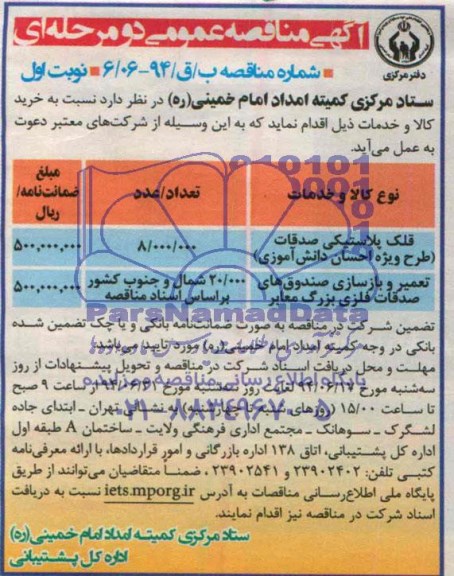 آگهی مناقصه عمومی دو مرحله‌ای
دفتر مرکزی
شماره مناقصه ب/ق/۹۴-۶/۰۶ نوبت اول
ستاد مرکزی کمیته امداد امام خمینی(ره) در نظر دارد نسبت به خرید
کالا و خدمات ذیل اقدام نماید که به این وسیله از شرکت‌های معتبر دعوت
به عمل می‌آید.
نوع کالا و خدمات تعداد/عدد مبلغ ضمانت‌نامه/ ریال
قلک پلاستیکی صدقات ۸/۰۰۰/۰۰۰ ۵۰۰,۰۰۰,۰۰۰
(طرح ویژه احسان دانش‌آموزی)
تعمیر و بازسازی صندوق‌های ۲۰/۰۰۰ شمال و جنوب کشور ۵۰۰,۰۰۰,۰۰۰
صدقات فلزی بزرگ معابر براساس اسناد مناقصه
ParsNamadData
تضمین شرکت در مناقصه به صورت ضمانت‌نامه بانکی و یا چک تضمین شده
بانکی در وجه کمیته امداد امام خمینی(ره) مورد تایید می‌باشد.
مهلت و محل دریافت اسناد شرکت در مناقصه و تحویل پیشنهادات از روز
سه‌شنبه مورخ ۹۴/۰۶/۱۷ لغایت روز سه‌شنبه مورخ از ساعت ۹ صبح
تا ساعت ۱۵/۰۰ (روزهای شنبه تا چهارشنبه) به نشانی تهران - ابتدای جاده
لشگرک - سوهانک - مجتمع اداری فرهنگی ولایت - ساختمان A طبقه اول
اداره کل پشتیبانی، اتاق ۱۳۸ اداره بازرگانی و امور قراردادها، با ارائه معرفی‌نامه
کتبی تلفن: ۲۳۹۰۲۴۰۲ و ۲۳۹۰۲۵۴۱ ، ضمناً متقاضیان می‌توانند از طریق
پایگاه ملی اطلاع‌رسانی مناقصات به آدرس iets.mporg.ir نسبت به دریافت
اسناد شرکت در مناقصه نیز اقدام نمایند.
ستاد مرکزی کمیته امداد امام خمینی(ره)
اداره کل پشتیبانی